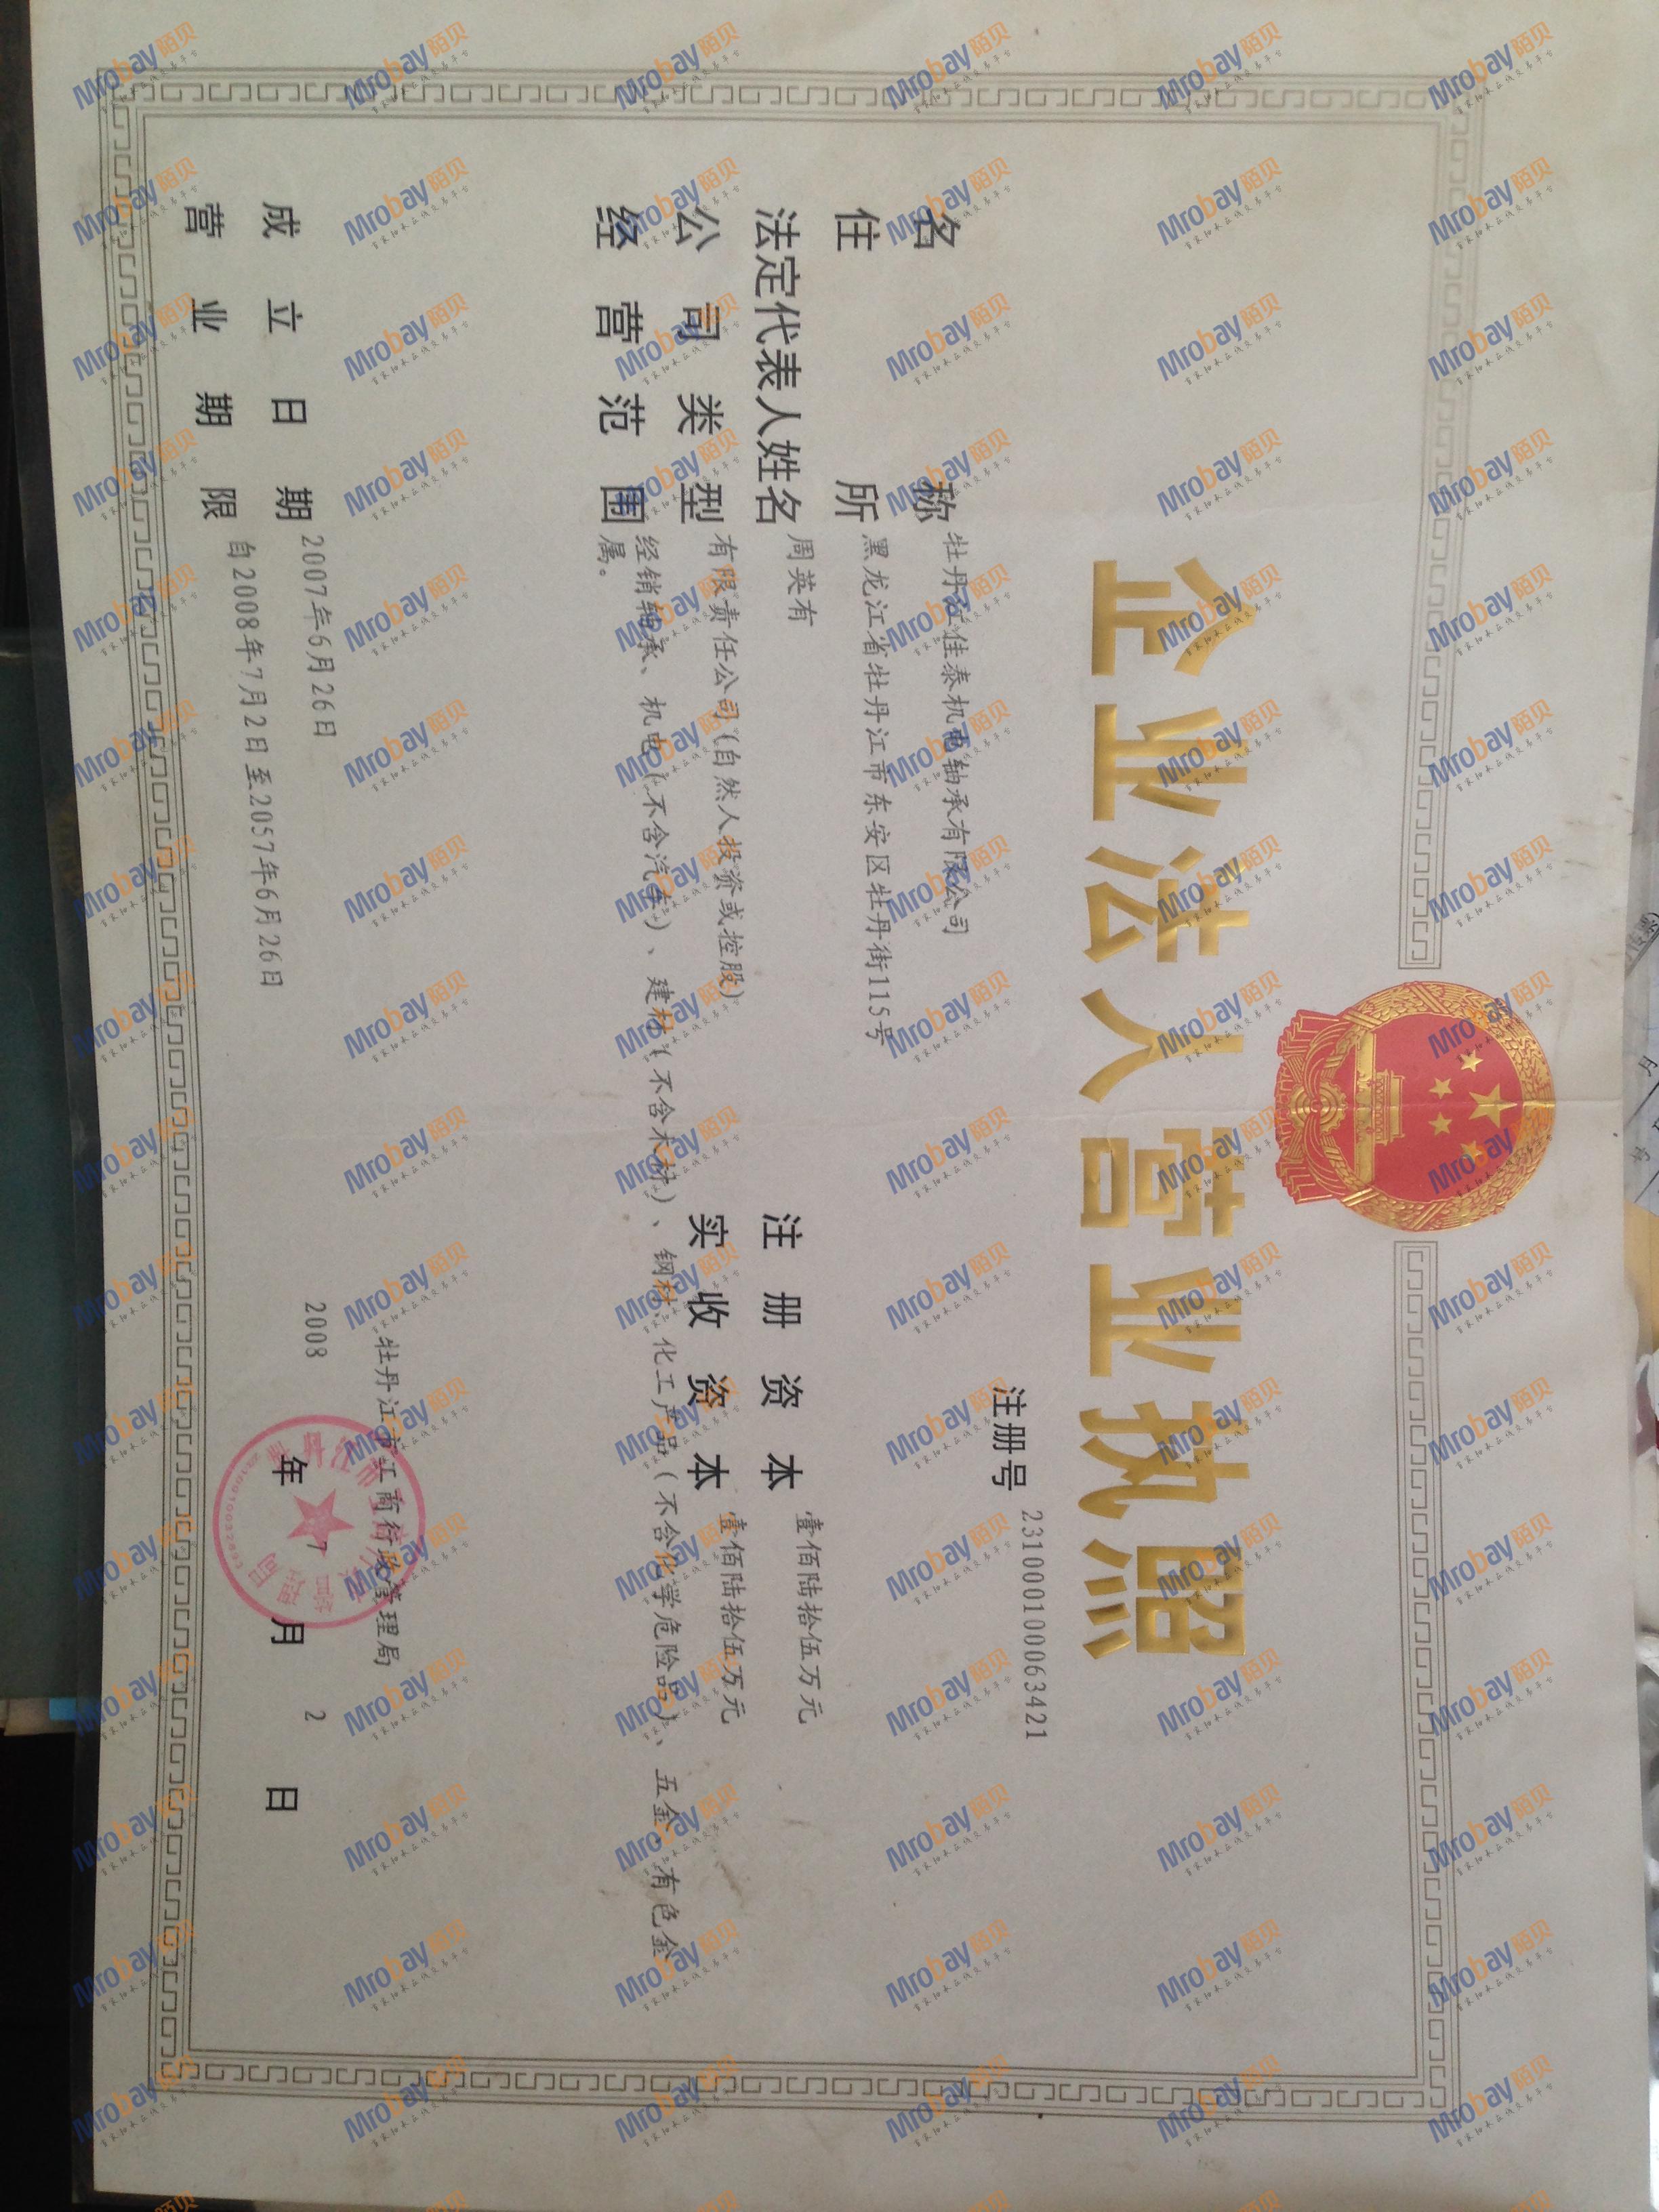 企业法人营业执照
注册号 231000100063421
名称 牡丹江佳泰机电轴承有限公司
住所 黑龙江省牡丹江市东安区牡丹街115号
法定代表人姓名 周英有
注册资本 壹佰陆拾伍万元
公司类型 有限责任公司(自然人投资或控股)
实收资本 壹佰陆拾伍万元
经营范围 经销轴承、机电(不含汽车)、建材(不含木材)、钢材、化工产品(不含化学危险品)、五金、有色金
属。
成立日期 2007年6月26日
营业期限 自2008年7月2日至2057年6月26日
牡丹江市工商行政管理局
2008年7月2日
Mrobay陌贝